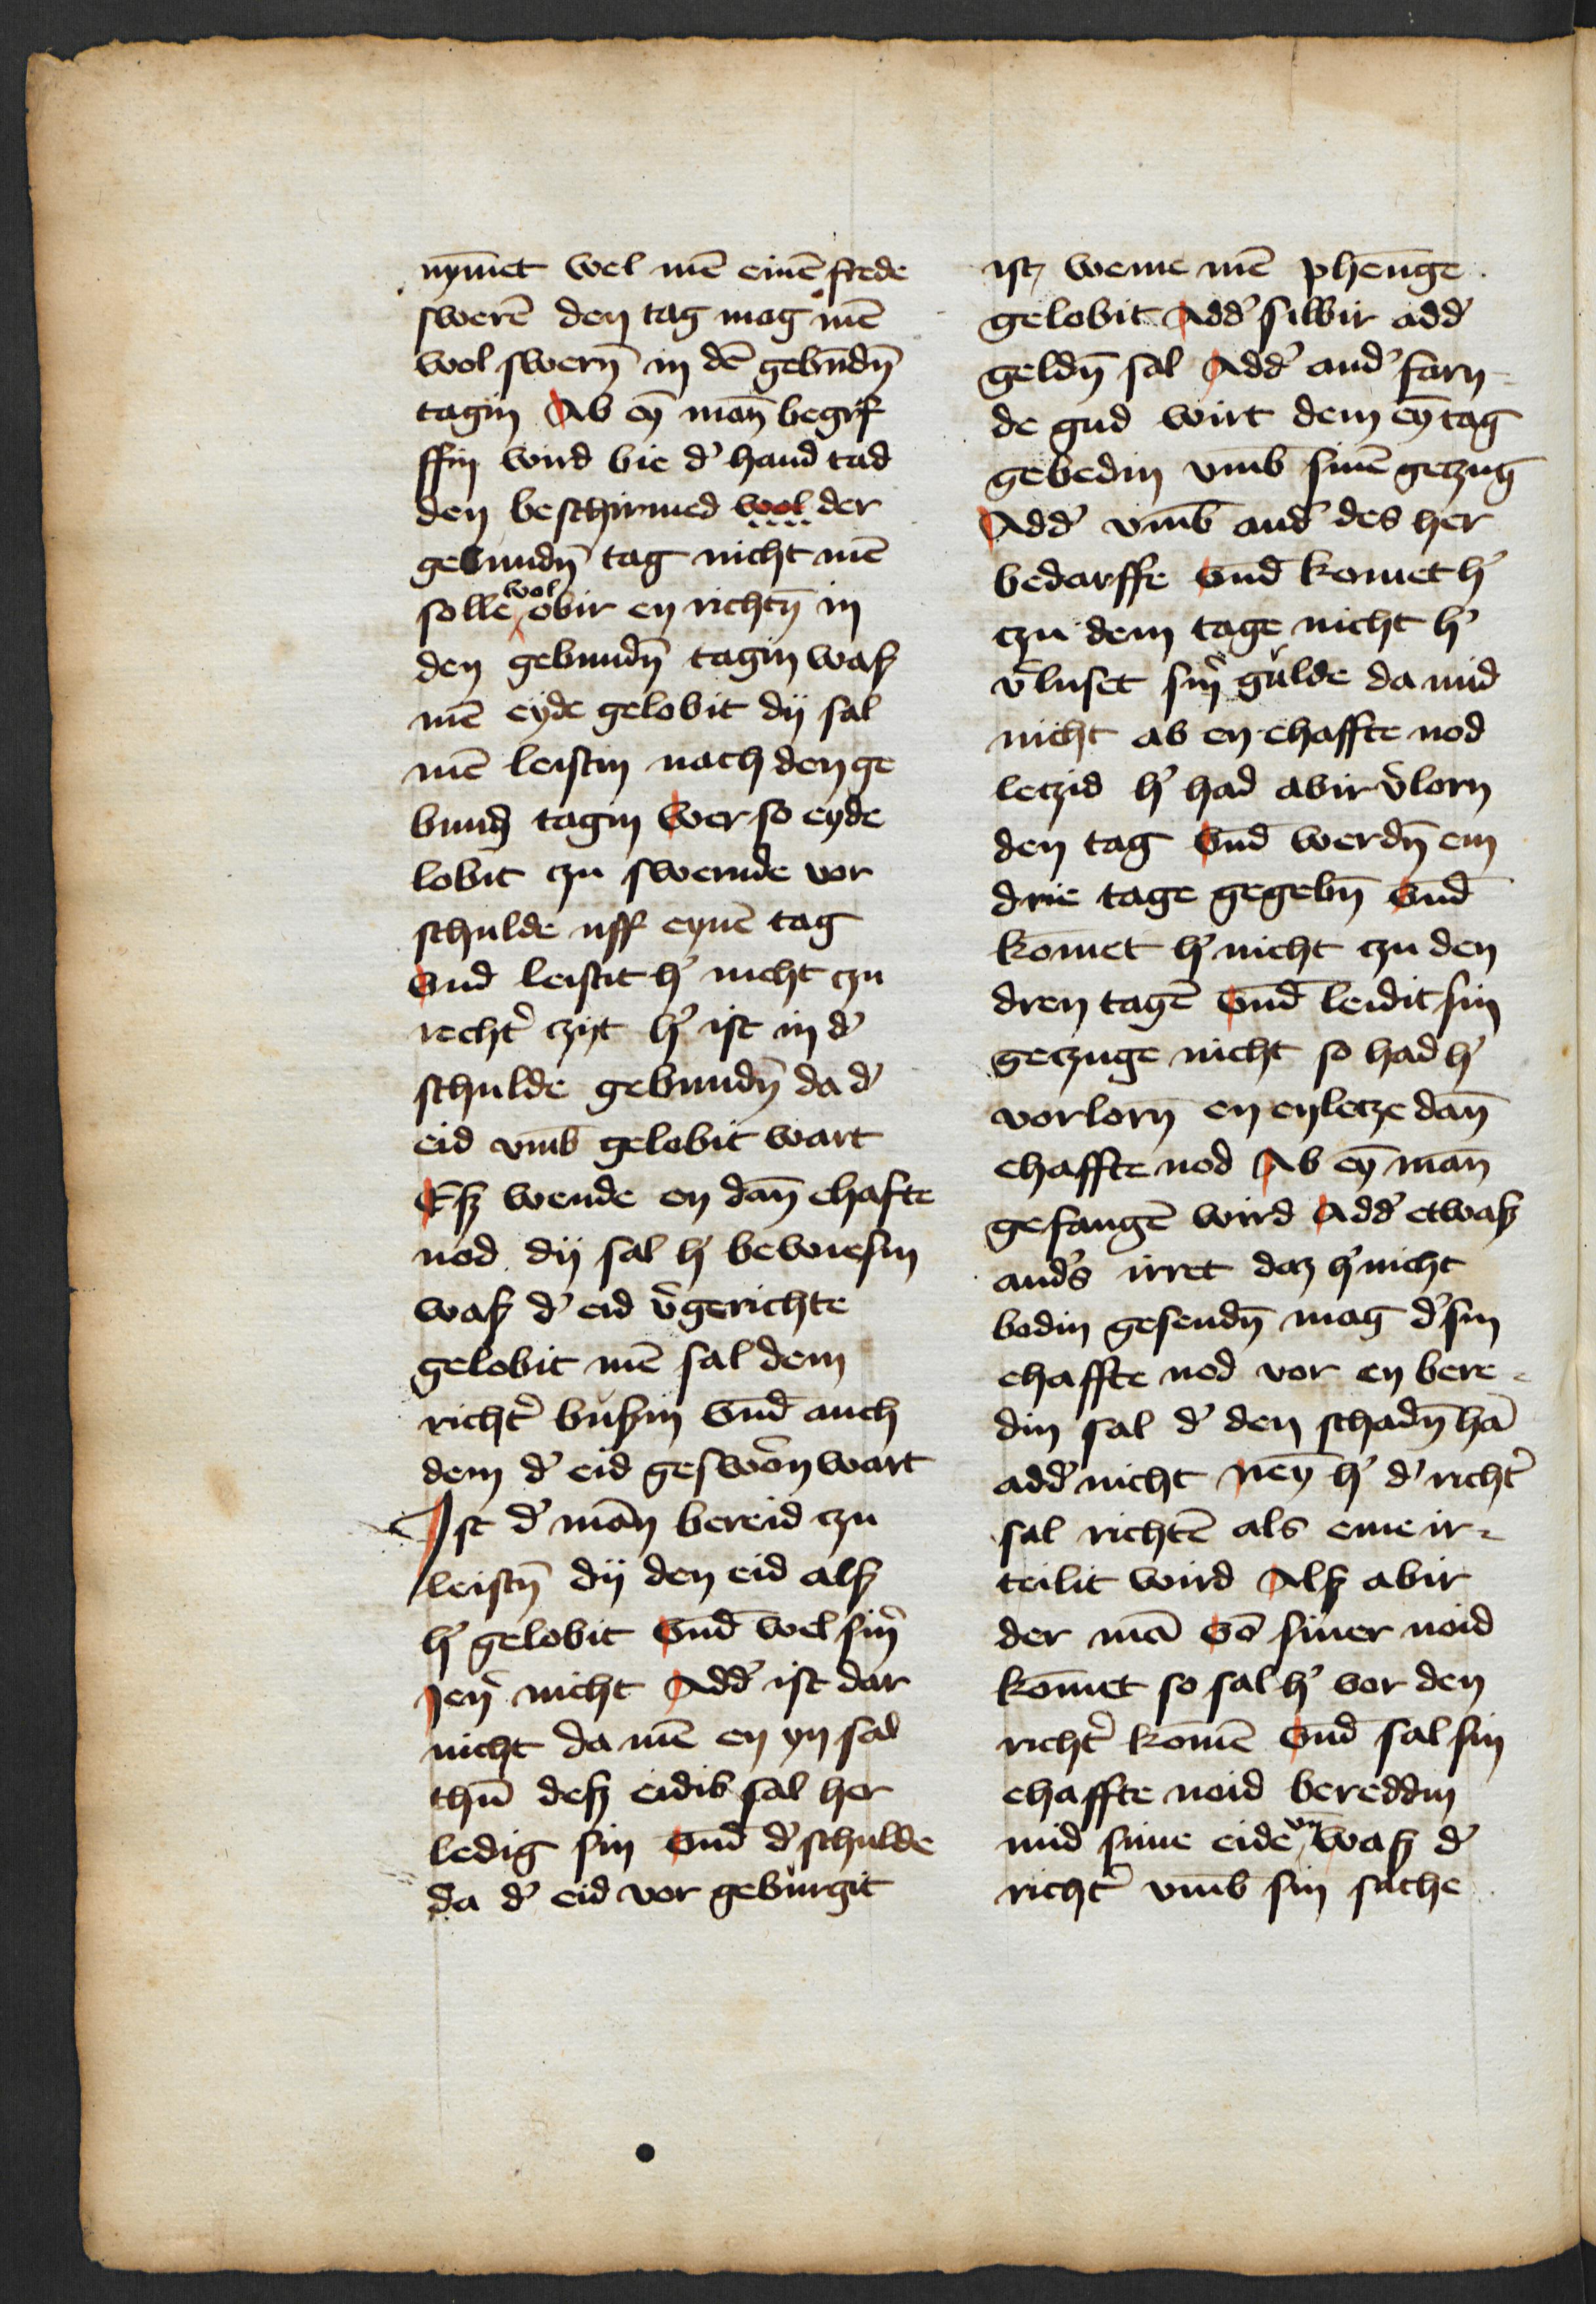 nym̄et wel mē einē frede
swerē den tag mag mē
wol swern̄ in dē gebūdn̄
tagin Ab eȳ man̄ begrif
ffin wird bie d' hand tad
den beschirmed wol der
gebundn̄ tag nicht mē
solle wol obir en richtn̄ in
den gebundn̄ tagin waß
mē eyde gelobit dÿ sal
mē leistin nach den ge
bundn̄ tagin Wer so eyde
lobit czu swernde vor
schulde uff eynē tag
Vnd leistit h' nicht czu
recht' czijt h' ist in d'
schulde gebundn̄ da d'
eid vm̄b gelobit wart
Eß wende en dan̄ ehafte
nod dÿ sal h' bewiesin
waß d' eid v̄gerichte
gelobit mē sal dem
richt' bußin Vnd̄ auch
dem d' eid geswōn wart
Ist d' man̄ bereid czu
leistn̄ dÿ den eid alß
h' gelobit Vnd̄ wel sin'
Jen' nicht Add' ist dar
nicht da mē en yn sal
thun̄ deß eidis sal her
ledig sin Vnd̄ d' schulde
da d' eid vor geburgit
ist, weme mē phēnge
gelobit Add' silbir add'
geldn̄ sal Add' and' farn
de gud wirt dem eȳ tag
gebedin vm̄b sinē getzug
Add' vm̄b and' des her
bedarffe Vnd̄ komet h'
czu dem tage nicht h'
v̄luset sin' gulde da mid
nicht ab en ehaffte nod
letzid h' had abir v̄lorn
den tag Vnd̄ werdn̄ em
drie tage gegebn̄ Vnd̄
kom̄et h' nicht czu den
dren tagē Vnd̄ leidit sin
getzuge nicht so had h'
vorlorn̄ en en letze dan̄
ehaffte nod Ab eȳ man̄
gefangē wird Add' etwaß
and's irret daz h' nicht
bodin gesendn̄ mag d' sin
ehaffte nod vor en bere
din sal d' den schadn̄ hā
add' nicht Neȳ h' d' richt'
sal richtē als eme ir
teilit wird Alß abir
der mā Vō siner noid
kom̄et so sal h' vor den
richt' kom̄ē Vnd̄ sal sin
ehaffte noid bereddin
mid sime eide vn̄ Waß d'
richt' vm̄b sin sache